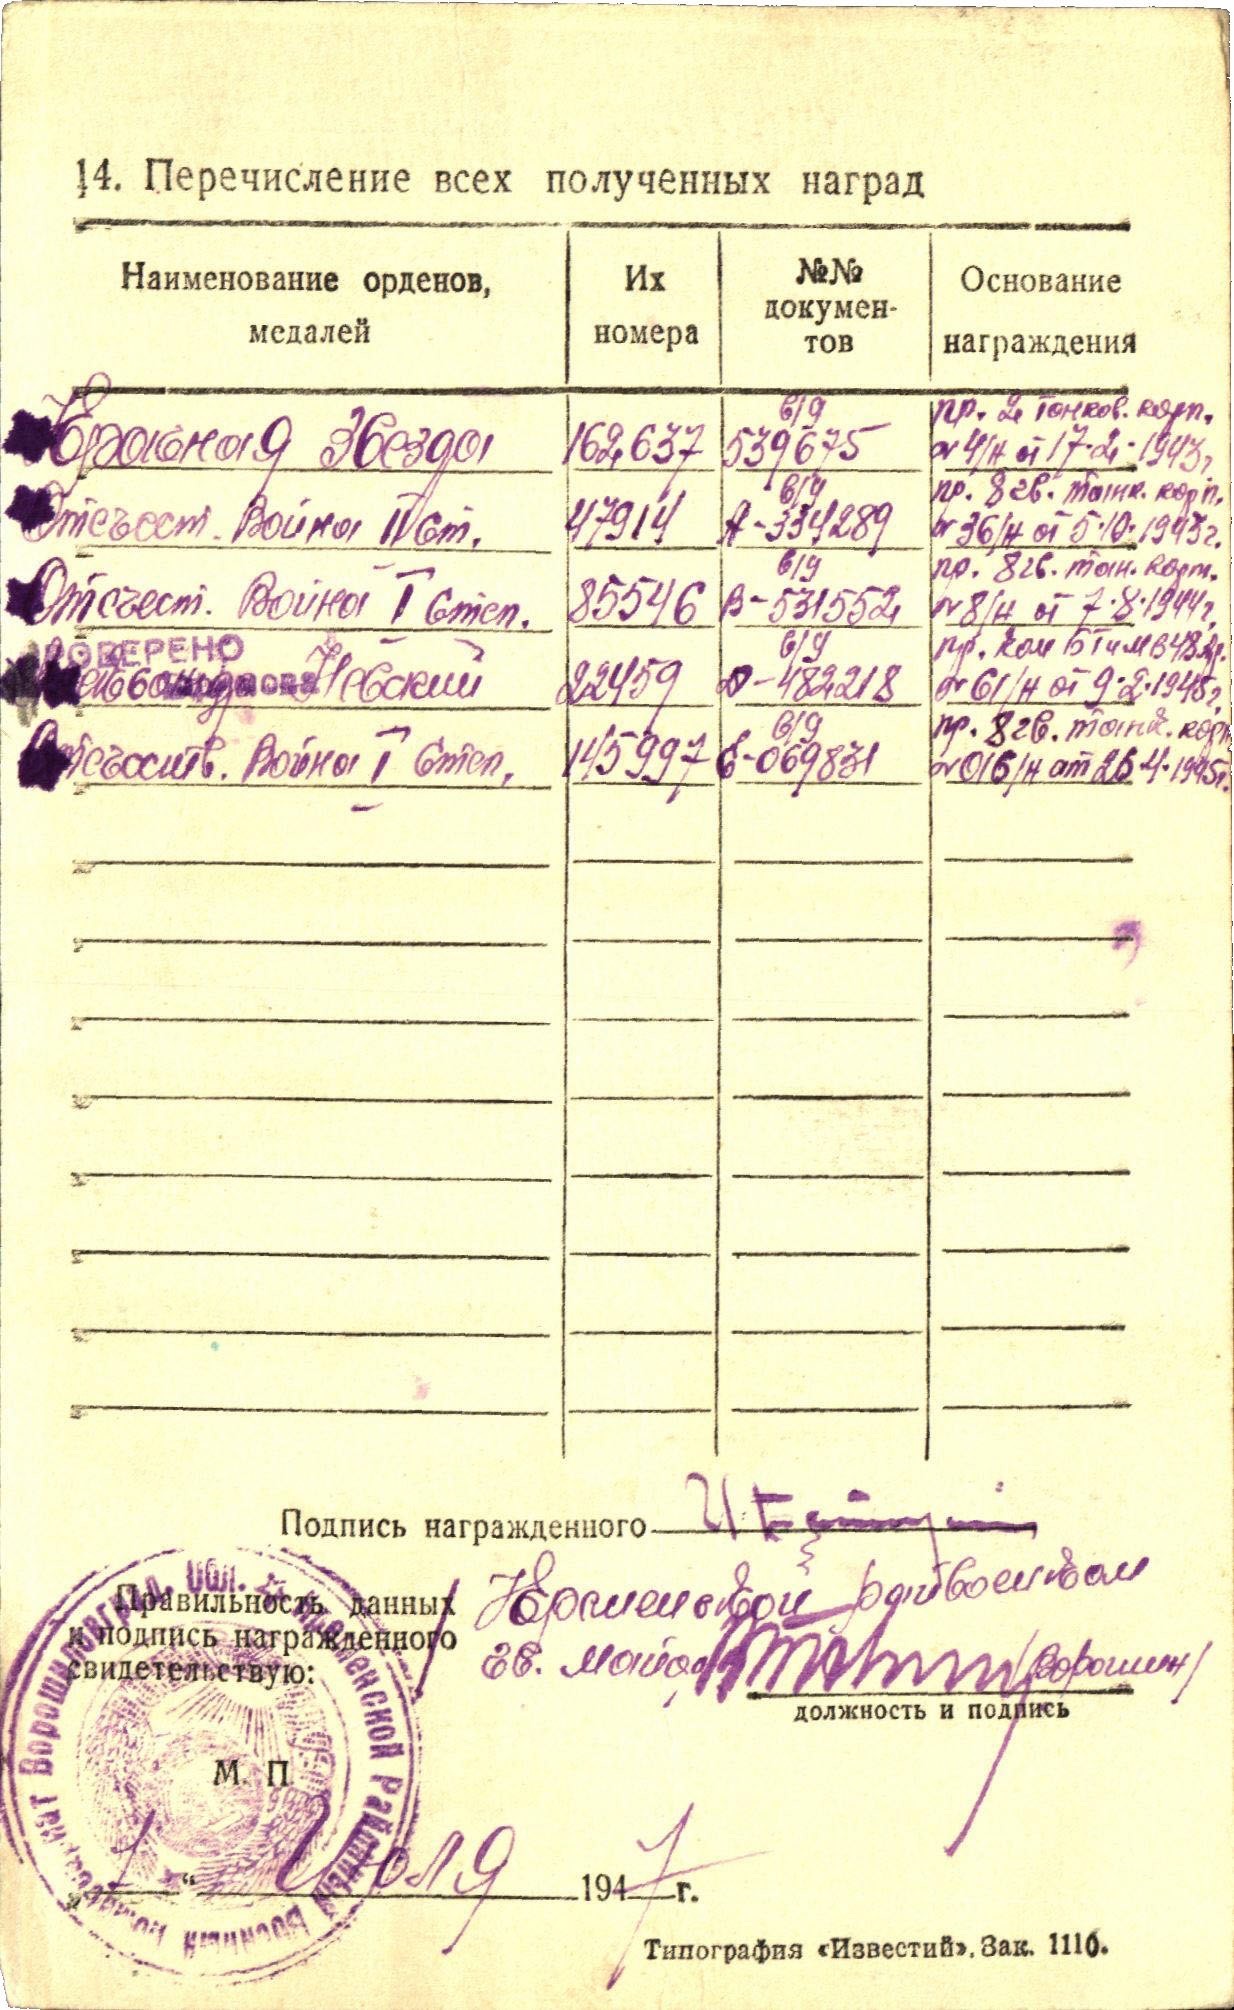 14. Перечисление всех полученных наград
Наименование орденов, медалей
Их номера
№№ докумен-тов
Основание награждения
Красная Звезда 162637 в/д 539675 пр. 2 танков. корп. № 4/н от 17.2.1943г.
Отечест. Война II Ст. 47914 в/д А-334289 пр. 8 гв. танк. корп. № 36/н от 5.10.1943г.
Отечест. Война I Степ. 85546 в/д В-531552 пр. 8 гв. тан. корп. № 8/н от 7.8.1944г.
ПРОВЕРЕНО
Невский 22459 в/д 482218 пр. Ком БТ и МВ 48 № 61/н от 9.2.1945г.
Отечеств. Война I Степ. 145997 в/д Е-069831 пр. 8 гв. танк. корп № 016/н от 26.4.1945г.
Подпись награжденного
Правильность данных
и подпись награжденного
свидетельствую:
Кременской райвоенком
гв. майор /Ворошин/
должность и подпись
М. П.
Ворошиловград. обл. Кременской Районный Военный Комиссариат
1 " Июля 1947 г.
Типография «Известий». Зак. 1110.